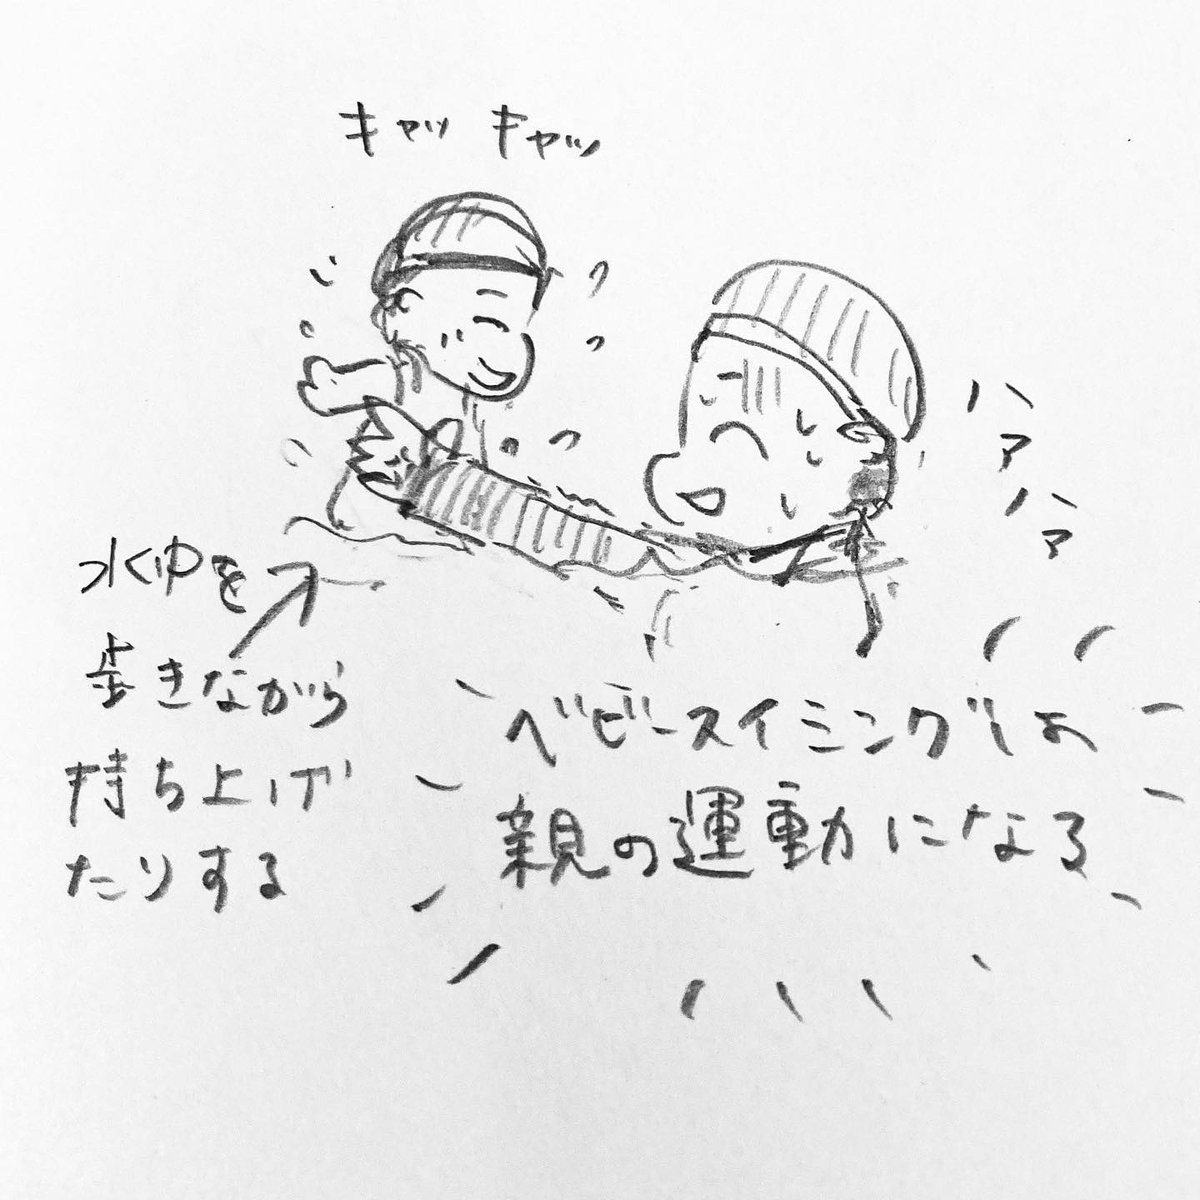 キャッ キャッ
ハァ
ハァ
水中を
歩きながら
持ち上げ
たりする
ベビースイミングは
親の運動になる